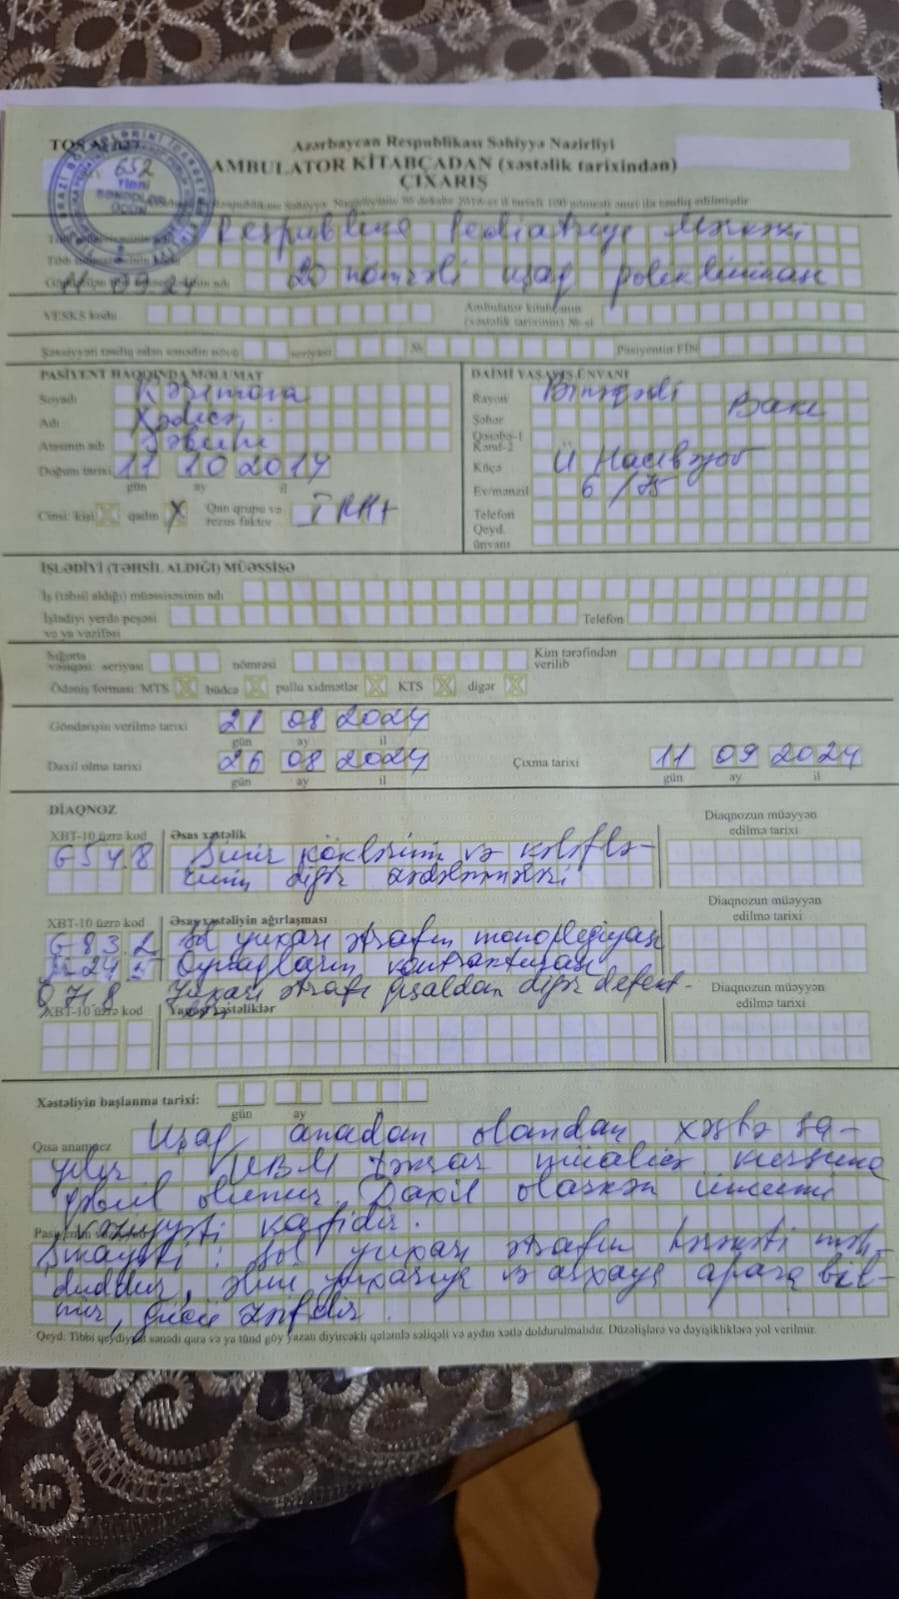 Azərbaycan Respublikası Səhiyyə Nazirliyi
652
AMBULATOR KİTABÇADAN (xəstəlik tarixindən)
ÇIXARIŞ
Respublika Pediatriya Mərkəzi
11 09 24 20 nömrəli uşaq poliklinikası
VESKS kodu
Ambulator kitabçanın (xəstəlik tarixinin) №-si
Şəxsiyyəti təsdiq edən sənədin növü seriyası № Pasiyentin FİN
PASİYENT HAQQINDA MƏLUMAT
Soyadı Kərimova
Adı Xədicə
Atasının adı
Doğum tarixi 11 10 2017
gün ay il
Cinsi: kişi qadın X Qan qrupu və rezus faktor I Rh+
DAİMİ YAŞAYIŞ ÜNVANI
Rayon Binəqədi
Şəhər Bakı
Qəsəbə-1
Kənd-2
Küçə Ü Hacıbəyov
Ev/mənzil 6 / 75
Telefon
Qeyd. ünvanı
İŞLƏDİYİ (TƏHSİL ALDIĞI) MÜƏSSİSƏ
İş (təhsil aldığı) müəssisəsinin adı
İşlədiyi yerdə peşəsi və ya vəzifəsi Telefon
Sığorta vəsiqəsi: seriyası nömrəsi Kim tərəfindən verilib
Ödəniş forması: MTS büdcə pullu xidmətlər KTS digər
Göndərişin verilmə tarixi 21 08 2024
gün ay il
Daxil olma tarixi 26 08 2024 Çıxma tarixi 11 09 2024
gün ay il gün ay il
DİAQNOZ
XBT-10 üzrə kod Əsas xəstəlik Diaqnozun müəyyən edilmə tarixi
G54.8 Sinir köklərinin və kələflə-
rinin digər zədələnmələri
XBT-10 üzrə kod Əsas xəstəliyin ağırlaşması Diaqnozun müəyyən edilmə tarixi
G83.2 Sol yuxarı ətrafın monoplegiyası
24.5 Oynaqların kontrakturası
Q71.8 Yuxarı ətrafı qısaldan digər defekt-
XBT-10 üzrə kod Yanaşı xəstəliklər Diaqnozun müəyyən edilmə tarixi
Xəstəliyin başlanma tarixi:
gün ay
Qısa anamnez Uşaq anadan olandan xəstə sa-
yılır. təkrar müalicə kursuna
qəbul olunur. Daxil olarkən ümumi
vəziyyəti kafidir.
Şikayəti: Sol yuxarı ətrafın hərəkəti məh-
duddur, əlini yuxarıya və arxaya apara bil-
mir, gücü zəifdir.
Qeyd: Tibbi qeydiyyat sənədi qara və ya tünd göy yazan diyircəkli qələmlə səliqəli və aydın xətlə doldurulmalıdır. Düzəlişlərə və dəyişikliklərə yol verilmir.